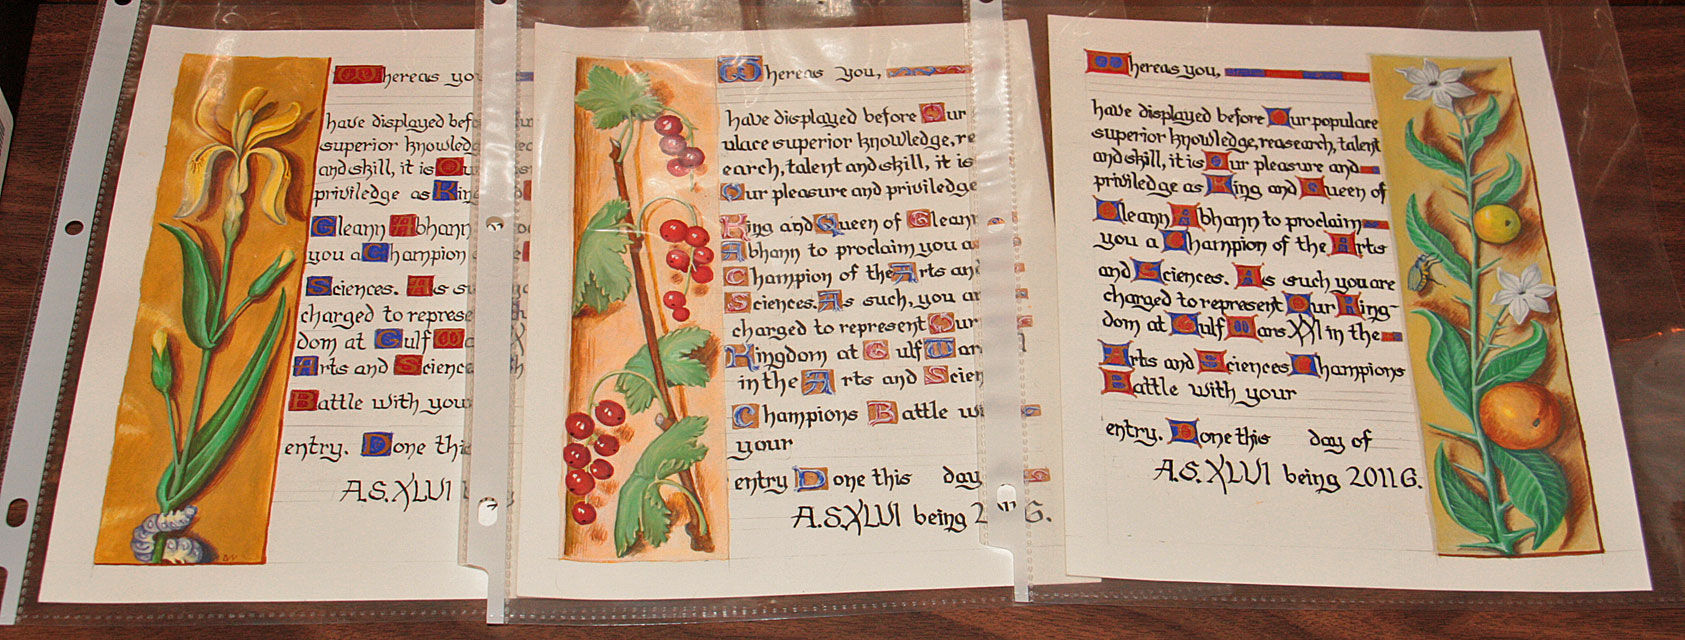 Whereas you
have displayed bef
superior knowled
and skill, it is Ou
priviledge as King
Gleann Abhann
you a Champion
Sciences. As su
charged to represe
dom at Gulf Wa
Arts and Science
Battle with your
entry. Done this
A.S.XLVI
Whereas you,
have displayed before Our
ulace superior knowledge, re
earch, talent and skill, it is
Our pleasure and priviledge
King and Queen of Gleann
Abhann to proclaim you a
Champion of the Arts and
Sciences. As such, you ar
charged to represent Our
Kingdom at Gulf War
in the Arts and Scien
Champions Battle wi
your
entry Done this day
A.S.XLVI being 2 G.
Whereas you,
have displayed before Our populace
superior knowledge, reasearch, talent
and skill, it is Our pleasure and
priviledge as King and Queen of
Gleann Abhann to proclaim
you a Champion of the Arts
and Sciences. As such you are
charged to represent Our King-
dom at Gulf Wars XXI in the
Arts and Sciences Champions
Battle with your
entry. Done this day of
A.S.XLVI being 2011 G.